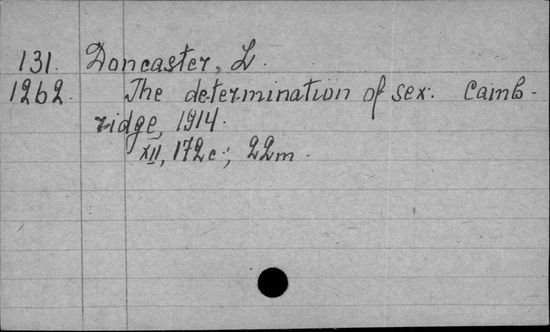 131. Doncaster, L.
1262. The determination of sex. Camb-
ridge, 1914.
XII, 172c.; 22m.